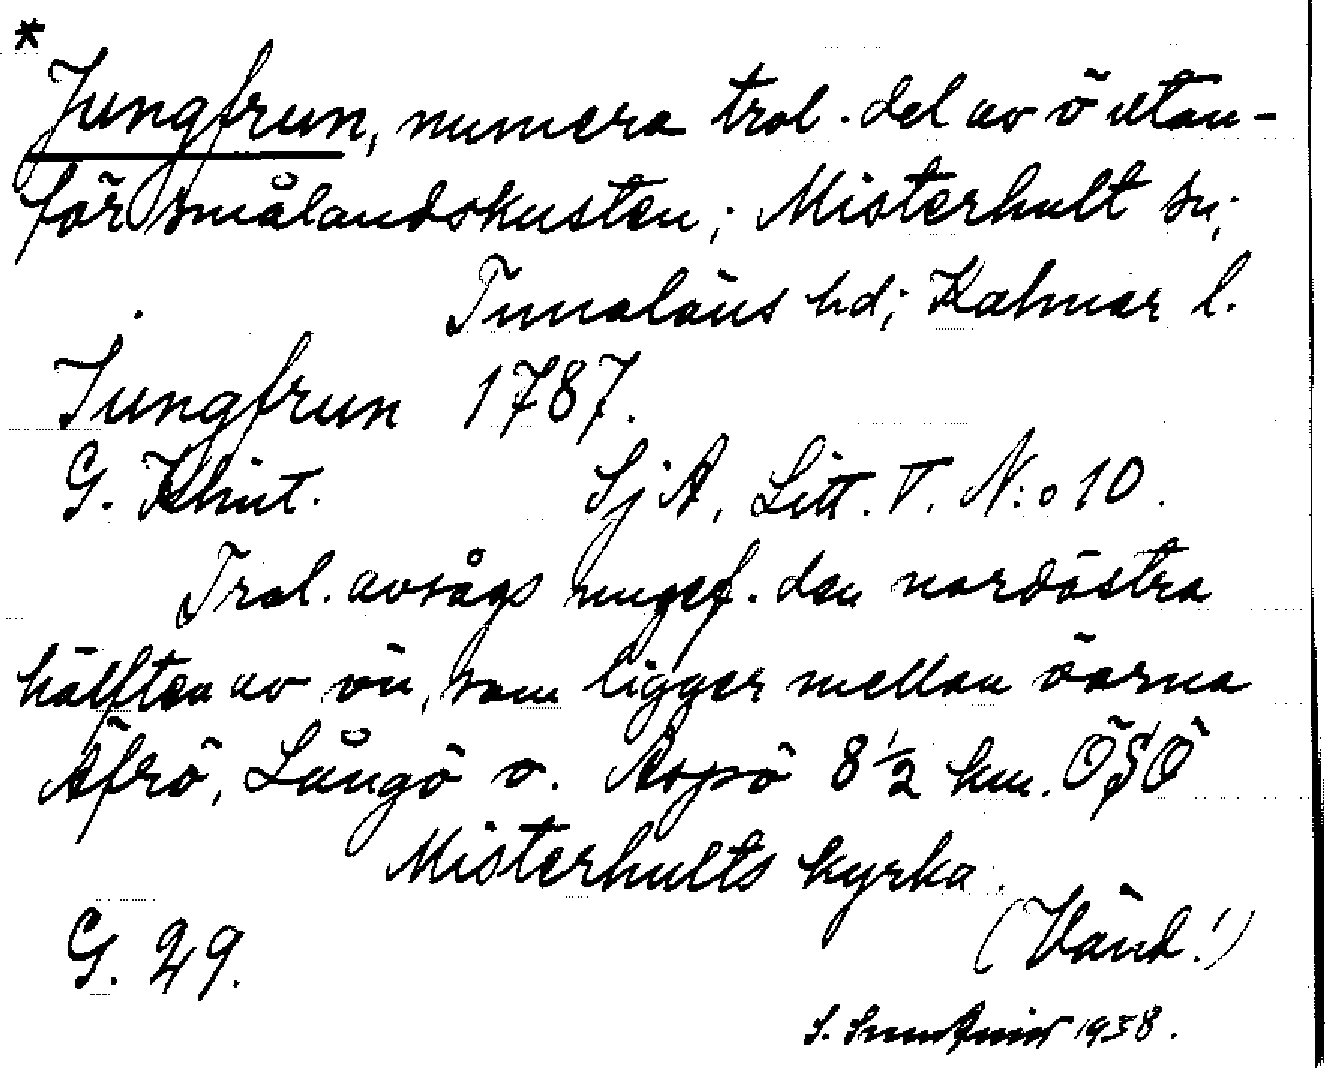 *
Jungfrun, numera trol. del av ö utan-
för Smålandskusten; Misterhult sn;
Tunaläns hd; Kalmar l.
Jungfrun 1787.
G. Klint. SjA, Litt. V. N:o 10.
Trol. avsågs ungef. den nordöstra
hälften av ön, som ligger mellan öarna
Äfrö, Långö o. Äspö 8 1/2 km. ÖSÖ
Misterhults kyrka.
G. 29. (Vänd!)
S. 1938.